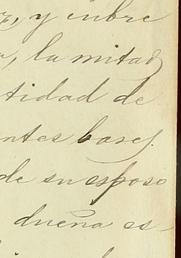 y cubre
la mitad
tidad de
ntes bases.
de su esposo
dueña es-